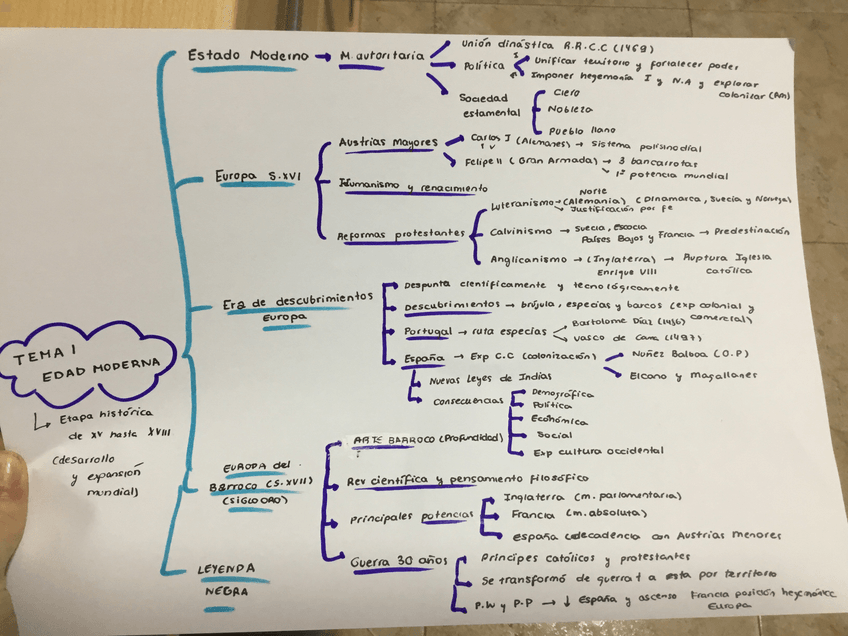 TEMA 1
EDAD MODERNA
Etapa histórica
de XV hasta XVIII
(desarrollo
y expansión
mundial)
Estado Moderno → M. autoritaria
Unión dinástica R.R.C.C (1469)
Política
Unificar territorio y fortalecer poder
Imponer hegemonía I y N.A y explorar
colonizar (Am)
Sociedad
estamental
Clero
Nobleza
Pueblo llano
Europa S.XVI
Austrias mayores
Carlos I (Alemanes) → Sistema polisinodial
V
Felipe II (Gran Armada) → 3 bancarrotas
1ª potencia mundial
Humanismo y renacimiento
Reformas protestantes
Norte
Luteranismo → (Alemania) (Dinamarca, Suecia y Noruega)
Justificación por fe
Calvinismo → Suecia, Escocia
Países Bajos y Francia → Predestinación
Anglicanismo → (Inglaterra) → Ruptura Iglesia
Enrique VIII católica
Era de descubrimientos
Europa
Despunta científicamente y tecnológicamente
Descubrimientos → brújula, especias y barcos (exp colonial y
comercial)
Portugal → ruta especias
Bartolome Díaz
Vasco de (1497)
España → Exp C.C (colonización)
Nuñez Balboa (O.P)
Elcano y Magallanes
Nuevas Leyes de Indias
Consecuencias
Demográfica
Política
Económica
Social
Exp cultura occidental
EUROPA del
Barroco (S.XVII)
(SIGLO ORO)
ARTE BARROCO (Profundidad)
Rev científica y pensamiento filosófico
principales potencias
Inglaterra (m. parlamentaria)
Francia (m. absoluta)
españa (decadencia con Austrias menores
Guerra 30 años
Príncipes católicos y protestantes
Se transformó de guerra t a esta por territorio
P.W y P.P → ↓ España y ascenso Francia posición hegemónica
Europa
LEYENDA
NEGRA